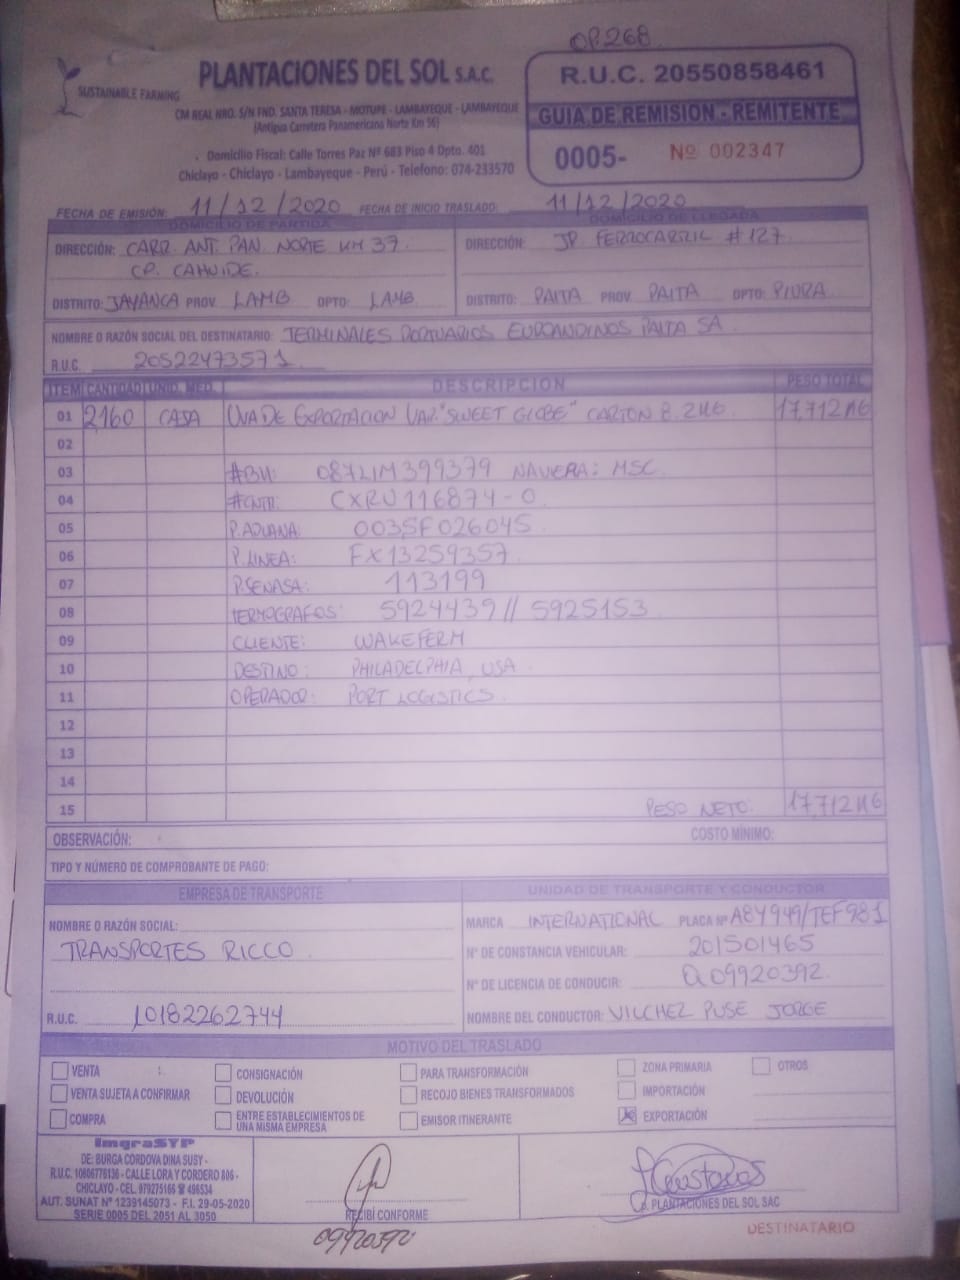 OP.268
SUSTAINABLE FARMING
PLANTACIONES DEL SOL S.A.C.
CM REAL NRO. S/N FND. SANTA TERESA - MOTUPE - LAMBAYEQUE - LAMBAYEQUE
(Antigua Carretera Panamericana Norte Km 56)
Domicilio Fiscal: Calle Torres Paz Nº 683 Piso 4 Dpto. 401
Chiclayo - Chiclayo - Lambayeque - Perú - Telefono: 074-233570
R.U.C. 20550858461
GUIA DE REMISION - REMITENTE
0005- Nº 002347
FECHA DE EMISIÓN: 11/12/2020 FECHA DE INICIO TRASLADO: 11/12/2020
DOMICILIO DE PARTIDA
DIRECCIÓN: CARR. ANT. PAN. NORTE KM 37
CP. CAHUIDE.
DISTRITO: JAYANCA PROV. LAMB DPTO: LAMB.
DOMICILIO DE LLEGADA
DIRECCIÓN: JR. FERROCARRIL # 127
DISTRITO: PAITA PROV. PAITA DPTO: PIURA
NOMBRE O RAZÓN SOCIAL DEL DESTINATARIO: TERMINALES PORTUARIOS EUROANDINOS PAITA SA
R.U.C. 20522473571
ITEM CANTIDAD UNID. MED. DESCRIPCION PESO TOTAL
01 2160 CAJA UVA DE EXPORTACION VAR. "SWEET GLOBE" CARTON 8.2KG 17,712 KG
02
03 #BK: 087LIM399379 NAVIERA: MSC
04 #CNTR: CXRU116874-0
05 P.ADUANA: 003SF026045
06 P.LINEA: FX13259357
07 P.SENASA: 113199
08 TERMOGRAFOS: 5924439 // 5925153
09 CLIENTE: WAKEFERM
10 DESTINO: PHILADELPHIA, USA
11 OPERADOR: PORT LOGISTICS
12
13
14
15 PESO NETO: 17,712 KG
OBSERVACIÓN: COSTO MÍNIMO:
TIPO Y NÚMERO DE COMPROBANTE DE PAGO:
EMPRESA DE TRANSPORTE
NOMBRE O RAZÓN SOCIAL:
TRANSPORTES RICCO
R.U.C. 10182262744
UNIDAD DE TRANSPORTE Y CONDUCTOR
MARCA INTERNATIONAL PLACA Nº A8Y949/TEF981
Nº DE CONSTANCIA VEHICULAR: 201501465
Nº DE LICENCIA DE CONDUCIR: Q09920392
NOMBRE DEL CONDUCTOR: VILCHEZ PUSE JORGE
MOTIVO DEL TRASLADO
VENTA
VENTA SUJETA A CONFIRMAR
COMPRA
CONSIGNACIÓN
DEVOLUCIÓN
ENTRE ESTABLECIMIENTOS DE
UNA MISMA EMPRESA
PARA TRANSFORMACIÓN
RECOJO BIENES TRANSFORMADOS
EMISOR ITINERANTE
ZONA PRIMARIA
IMPORTACIÓN
EXPORTACIÓN
OTROS
ImgraSYP
DE: BURGA CORDOVA DINA SUSY -
R.U.C. 10806778136 - CALLE LORA Y CORDERO 806 -
CHICLAYO - CEL. 979275166 ☎ 496534
AUT. SUNAT Nº 1239145073 - F.I. 29-05-2020
SERIE 0005 DEL 2051 AL 3050
RECIBÍ CONFORME
09920392
P. PLANTACIONES DEL SOL SAC
DESTINATARIO